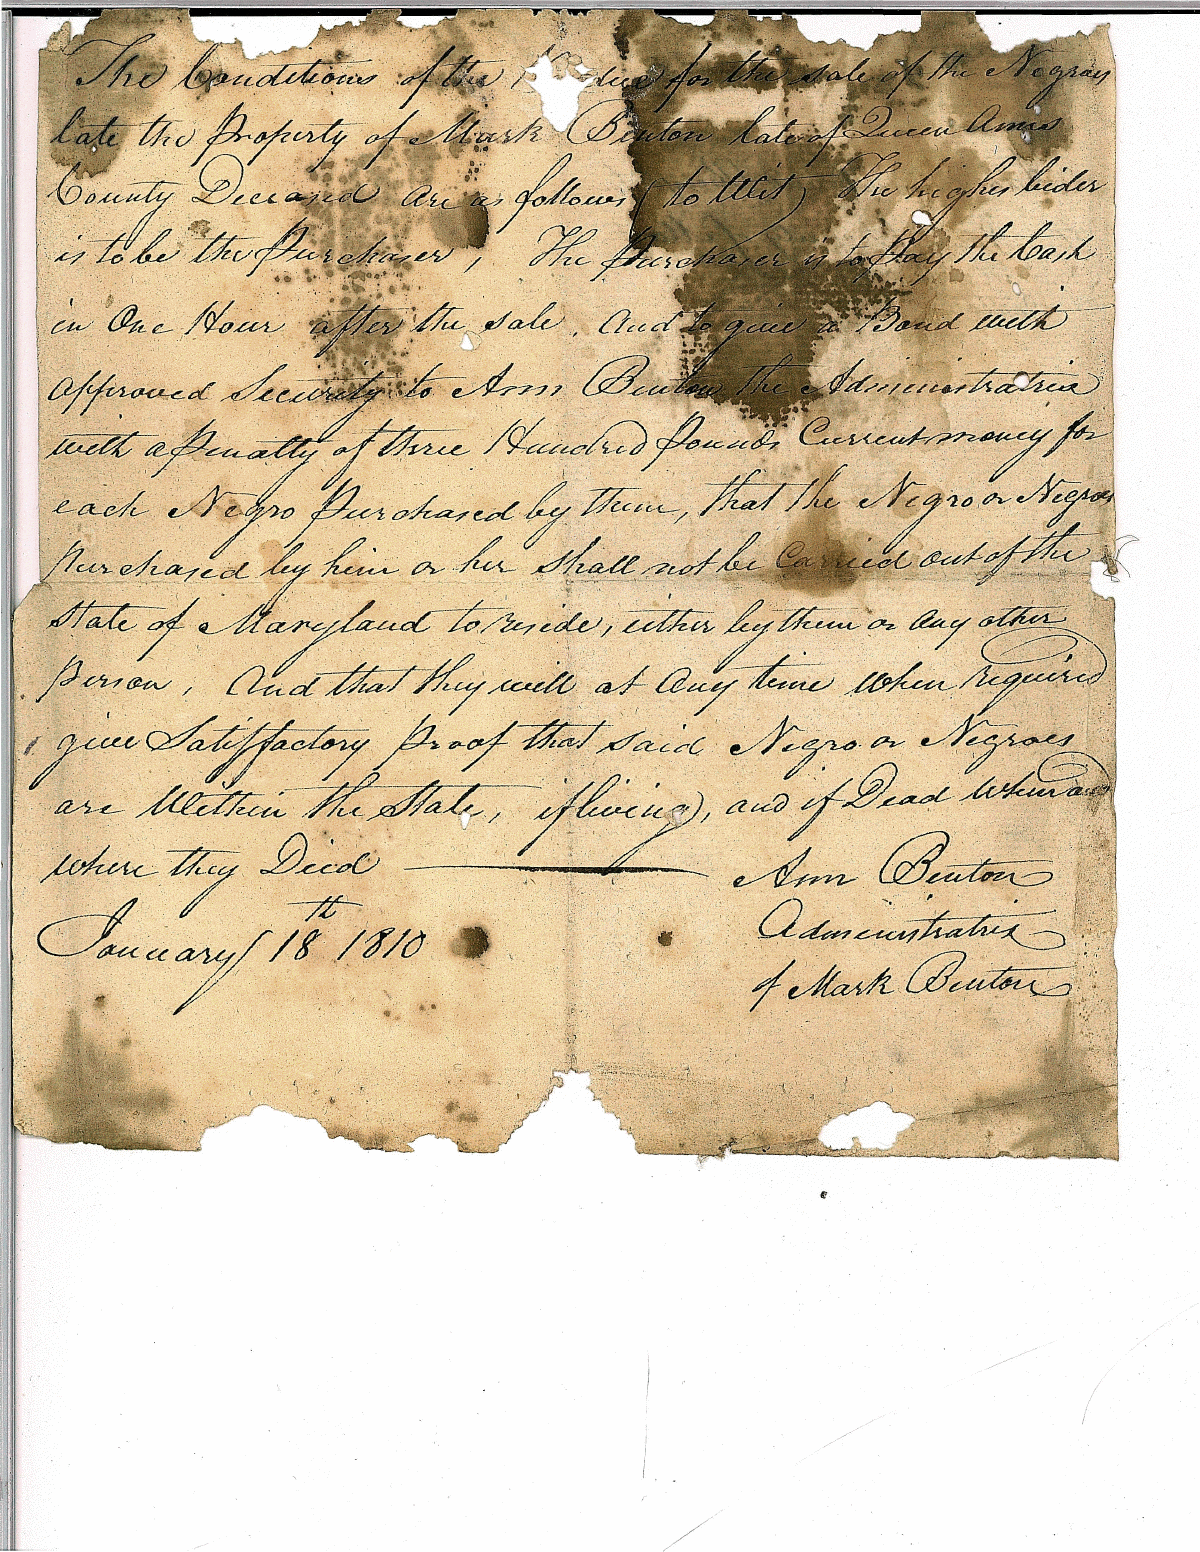 The Conditions of the for the sale of the Negroes
late the Property of Mark Benton late of Queen Anns
County Deceasd are as follows (to Wit) The highes bider
is to be the Purchaser, The Purchaser is to Pay the Cash
in One Hour after the sale, and to give a Bond with
approved Security to Ann Benton the Administratrix
with a Penalty of three Hundred Pounds Current money for
each Negro Purchased by them, that the Negro or Negroes
Purchased by him or her shall not be Carried out of the
State of Maryland to reside, either by them or any other
Person, And that they will at any time when required
give Satisffactory Proof that said Negro or Negroes
are Within the State, if living), and if Dead when and
where they Died
Ann Benton
Administratrix
of Mark Benton
January 18th 1810